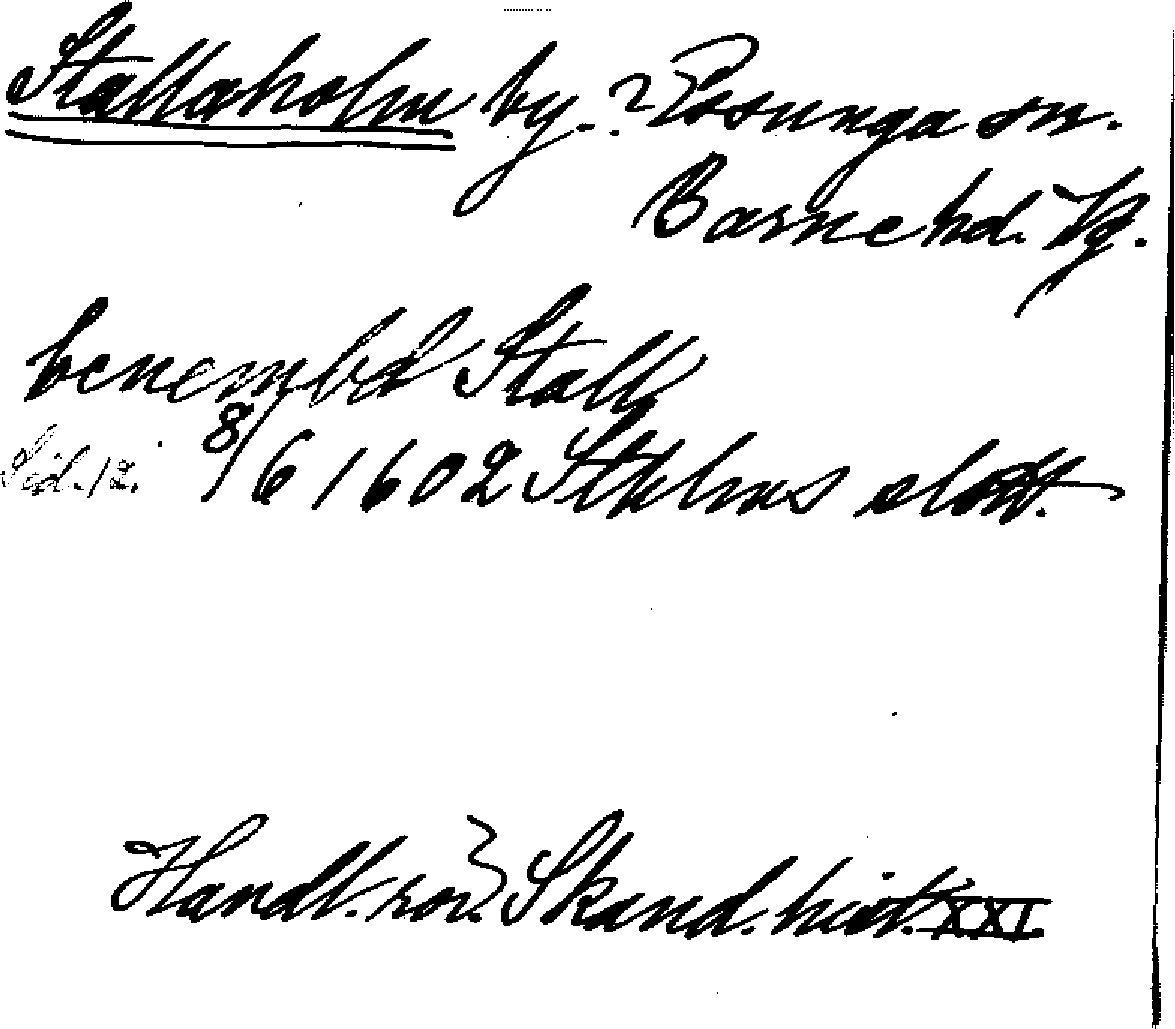 Stallaholm by. ? Vossunga sn.
Barne hd. Vg.
benembd Stall
Sid. 12. 8/6 1602 Sthlms slott.
Handl. rör. Skand. hist. XXI.